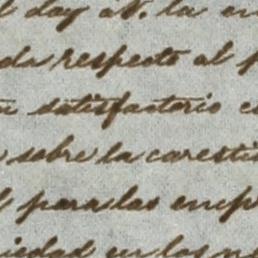 l doy á V. la en
da respecto al p
n satisfactorio e
sobre la caresti
l para las emp
iedad en los n